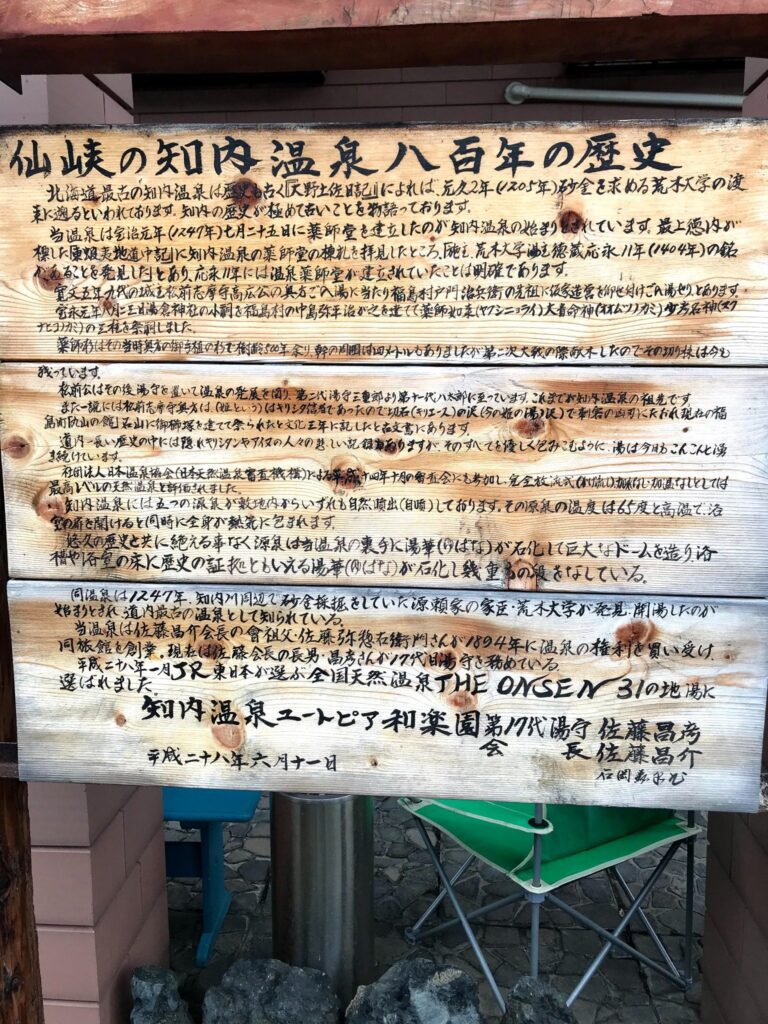 仙峡の知内温泉八百年の歴史
北海道最古の知内温泉は歴史も古く『大野土佐日記』によれば、元久2年(1205年)砂金を求める荒木大学の渡
来に遡るといわれております。知内の歴史が極めて古いことを物語っております。
当温泉は宝治元年(1247年)七月二十五日に薬師堂を建立したのが知内温泉の始まりとされています。最上徳内が
に知内温泉の薬師堂の棟札を拝見したところ、荒木大学 応永11年(1404年)の銘
があることを発見した』とあり、応永11年には温泉薬師堂が建立されていたことは明確であります。
寛文五年九代の城主松前志摩守高広公の奥方ご入湯に当たり福島村戸門治兵衛の先祖に仮家造営を仰せ付け
八月十二日湯倉神社の小祠を福島村の中島弥平治が之を建てて薬師如来(ヤクシニョライ)大己貴命神(オオムツノカミ)少名彦名神(スク
ナヒコノカミ)の三柱を祭祠しました。
薬師杉はその当時奥方の御手植の杉で樹齢500年余り、幹の周囲は四メートルもありましたが第二次大戦の際献木したのでその切り株は今も
残っています。
松前公はその後湯守を置いて温泉の発展を図り、第二代湯守三重郎より第十一代八太郎に至っています。これまでが知内温泉の祖先です。
また一説には松前志摩守奥方は、(姫という)はキリシタン信者であったので切石(キリエース)の沢(今の姫の湯ノ沢)で刺客の凶刃にたおれ現在の福
島町 に御 塚を建て祭られたと文化三年に記した古文書にあります。
道内一長い歴史の中には隠れキリシタンやアイヌの人々の悲しい記録もありますが、そのすべてを優しく包みこむように、湯は今日もこんこんと湧
き続けています。
社団法人日本温泉協会(日本天然温泉審査機構)による平成十四年十月の審査会にも参加し、完全放流式 加水なし加温なしとしては
最高レベルの天然温泉と評価されました。
知内温泉には五つの源泉が敷地内からいずれも自然噴出(自噴)しております。その源泉の温度は65度と高温で、浴
室の扉を開けると同時に全身が熱気に包まれます。
悠久の歴史と共に絶える事なく源泉は当温泉の裏手に湯華(ゆばな)が石化して巨大なドームを造り、浴
槽や浴室の床に歴史の証拠ともいえる湯華(ゆばな)が石化し幾重もの段をなしている。
同温泉は1247年、知内川周辺で砂金採掘をしていた源頼家の家臣・荒木大学が発見、開湯したのが
始まりとされ、道内最古の温泉として知られている。
当温泉は佐藤昌介会長の曾祖父・佐藤弥惣右衛門さんが1894年に温泉の権利を買い受け、
同旅館を創業。現在は佐藤会長の長男・昌彦さんが17代目湯守を務めている。
平成二十八年一月JR東日本が選ぶ全国天然温泉THE ONSEN 31の地湯に
選ばれました。
知内温泉ユートピア和楽園 第17代湯守 佐藤昌彦
会長 佐藤昌介
平成二十八年六月十一日